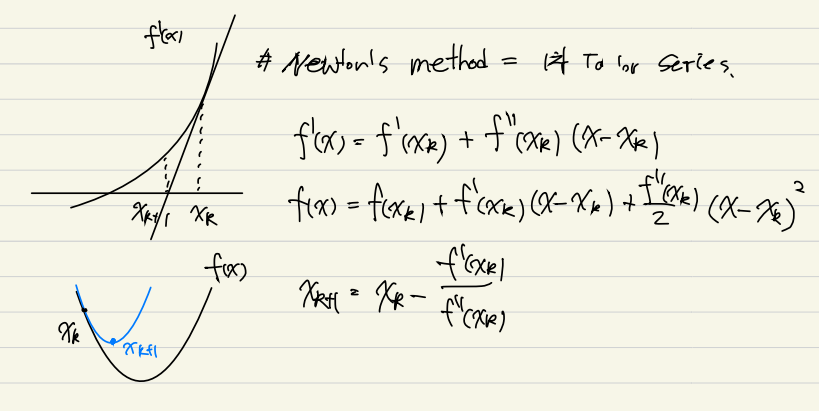 f'(x)
# Newton's method = 1차 Taylor series.
f'(x) = f'(xₖ) + f''(xₖ) (x-xₖ)
xₖ₊₁ xₖ
f(x) = f(xₖ) + f'(xₖ)(x-xₖ) + f''(xₖ)/2 (x-xₖ)²
f(x)
xₖ₊₁ = xₖ - f'(xₖ)/f''(xₖ)
xₖ
xₖ₊₁